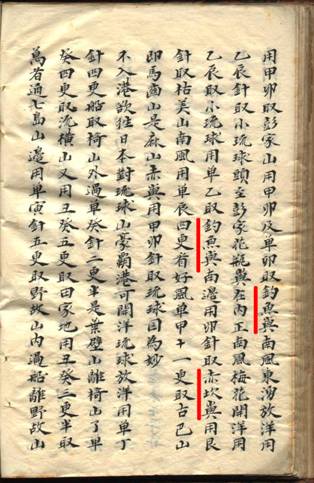 用甲卯取彭家山用甲卯及单卯取钓魚嶼南風東湧放洋用
乙辰針取小琉球頭至彭家花瓶嶼在内正南風梅花開洋用
乙辰取小琉球用单乙取钓魚嶼南邉用卯針取赤坎嶼用艮
針取枯美山南風用单辰四更看好風单甲十一更取古巴山
即馬齒山是麻山赤嶼用甲卯針取琉球國為妙
不入港欲往日本對琉球山豪霸港可開洋琉球放洋用单丁
針四更船取椅山外過单癸針二更半是葉壁山離椅山了单
癸四更取流横山又用丑癸五更取田家地用丑癸三更半取
萬者通七島山邉用单寅針五更取野故山内過船離野故山